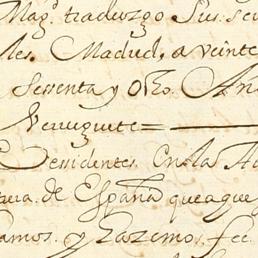 Mag.^d traduzgo Sus. se
les. Madrid, a veinte
Sessenta y Ocho. An
Verruguete =
Residentes En la
ura. de España que aque
amos. y hazemo, fee